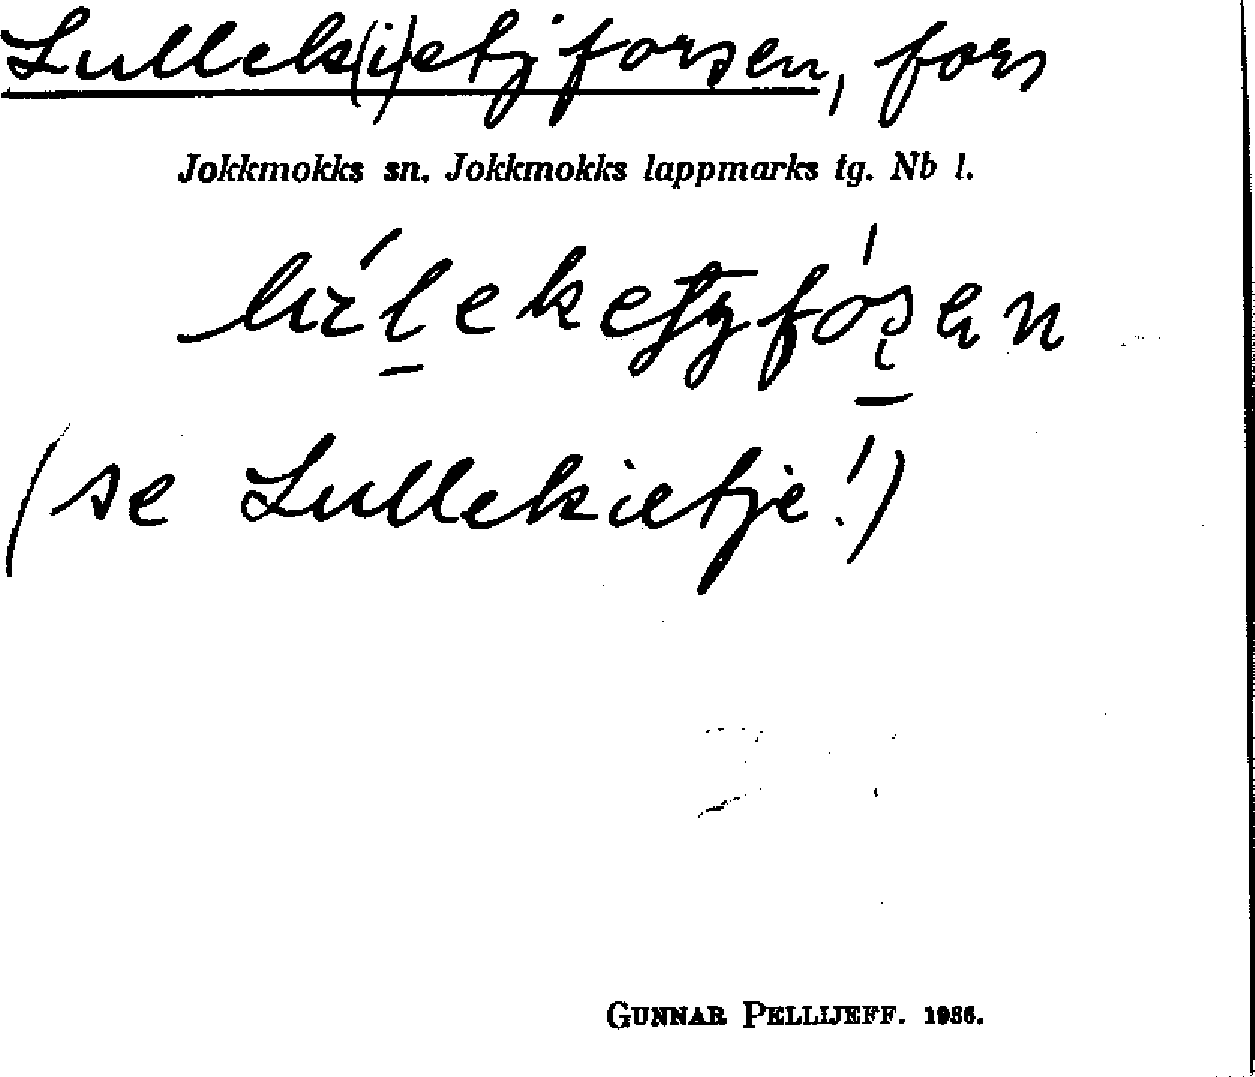 Lullek(i)etjforsen, fors
Jokkmokks sn. Jokkmokks lappmarks tg. Nb l.
(se Lullekietje!)
GUNNAR PELLIJEFF. 1956.